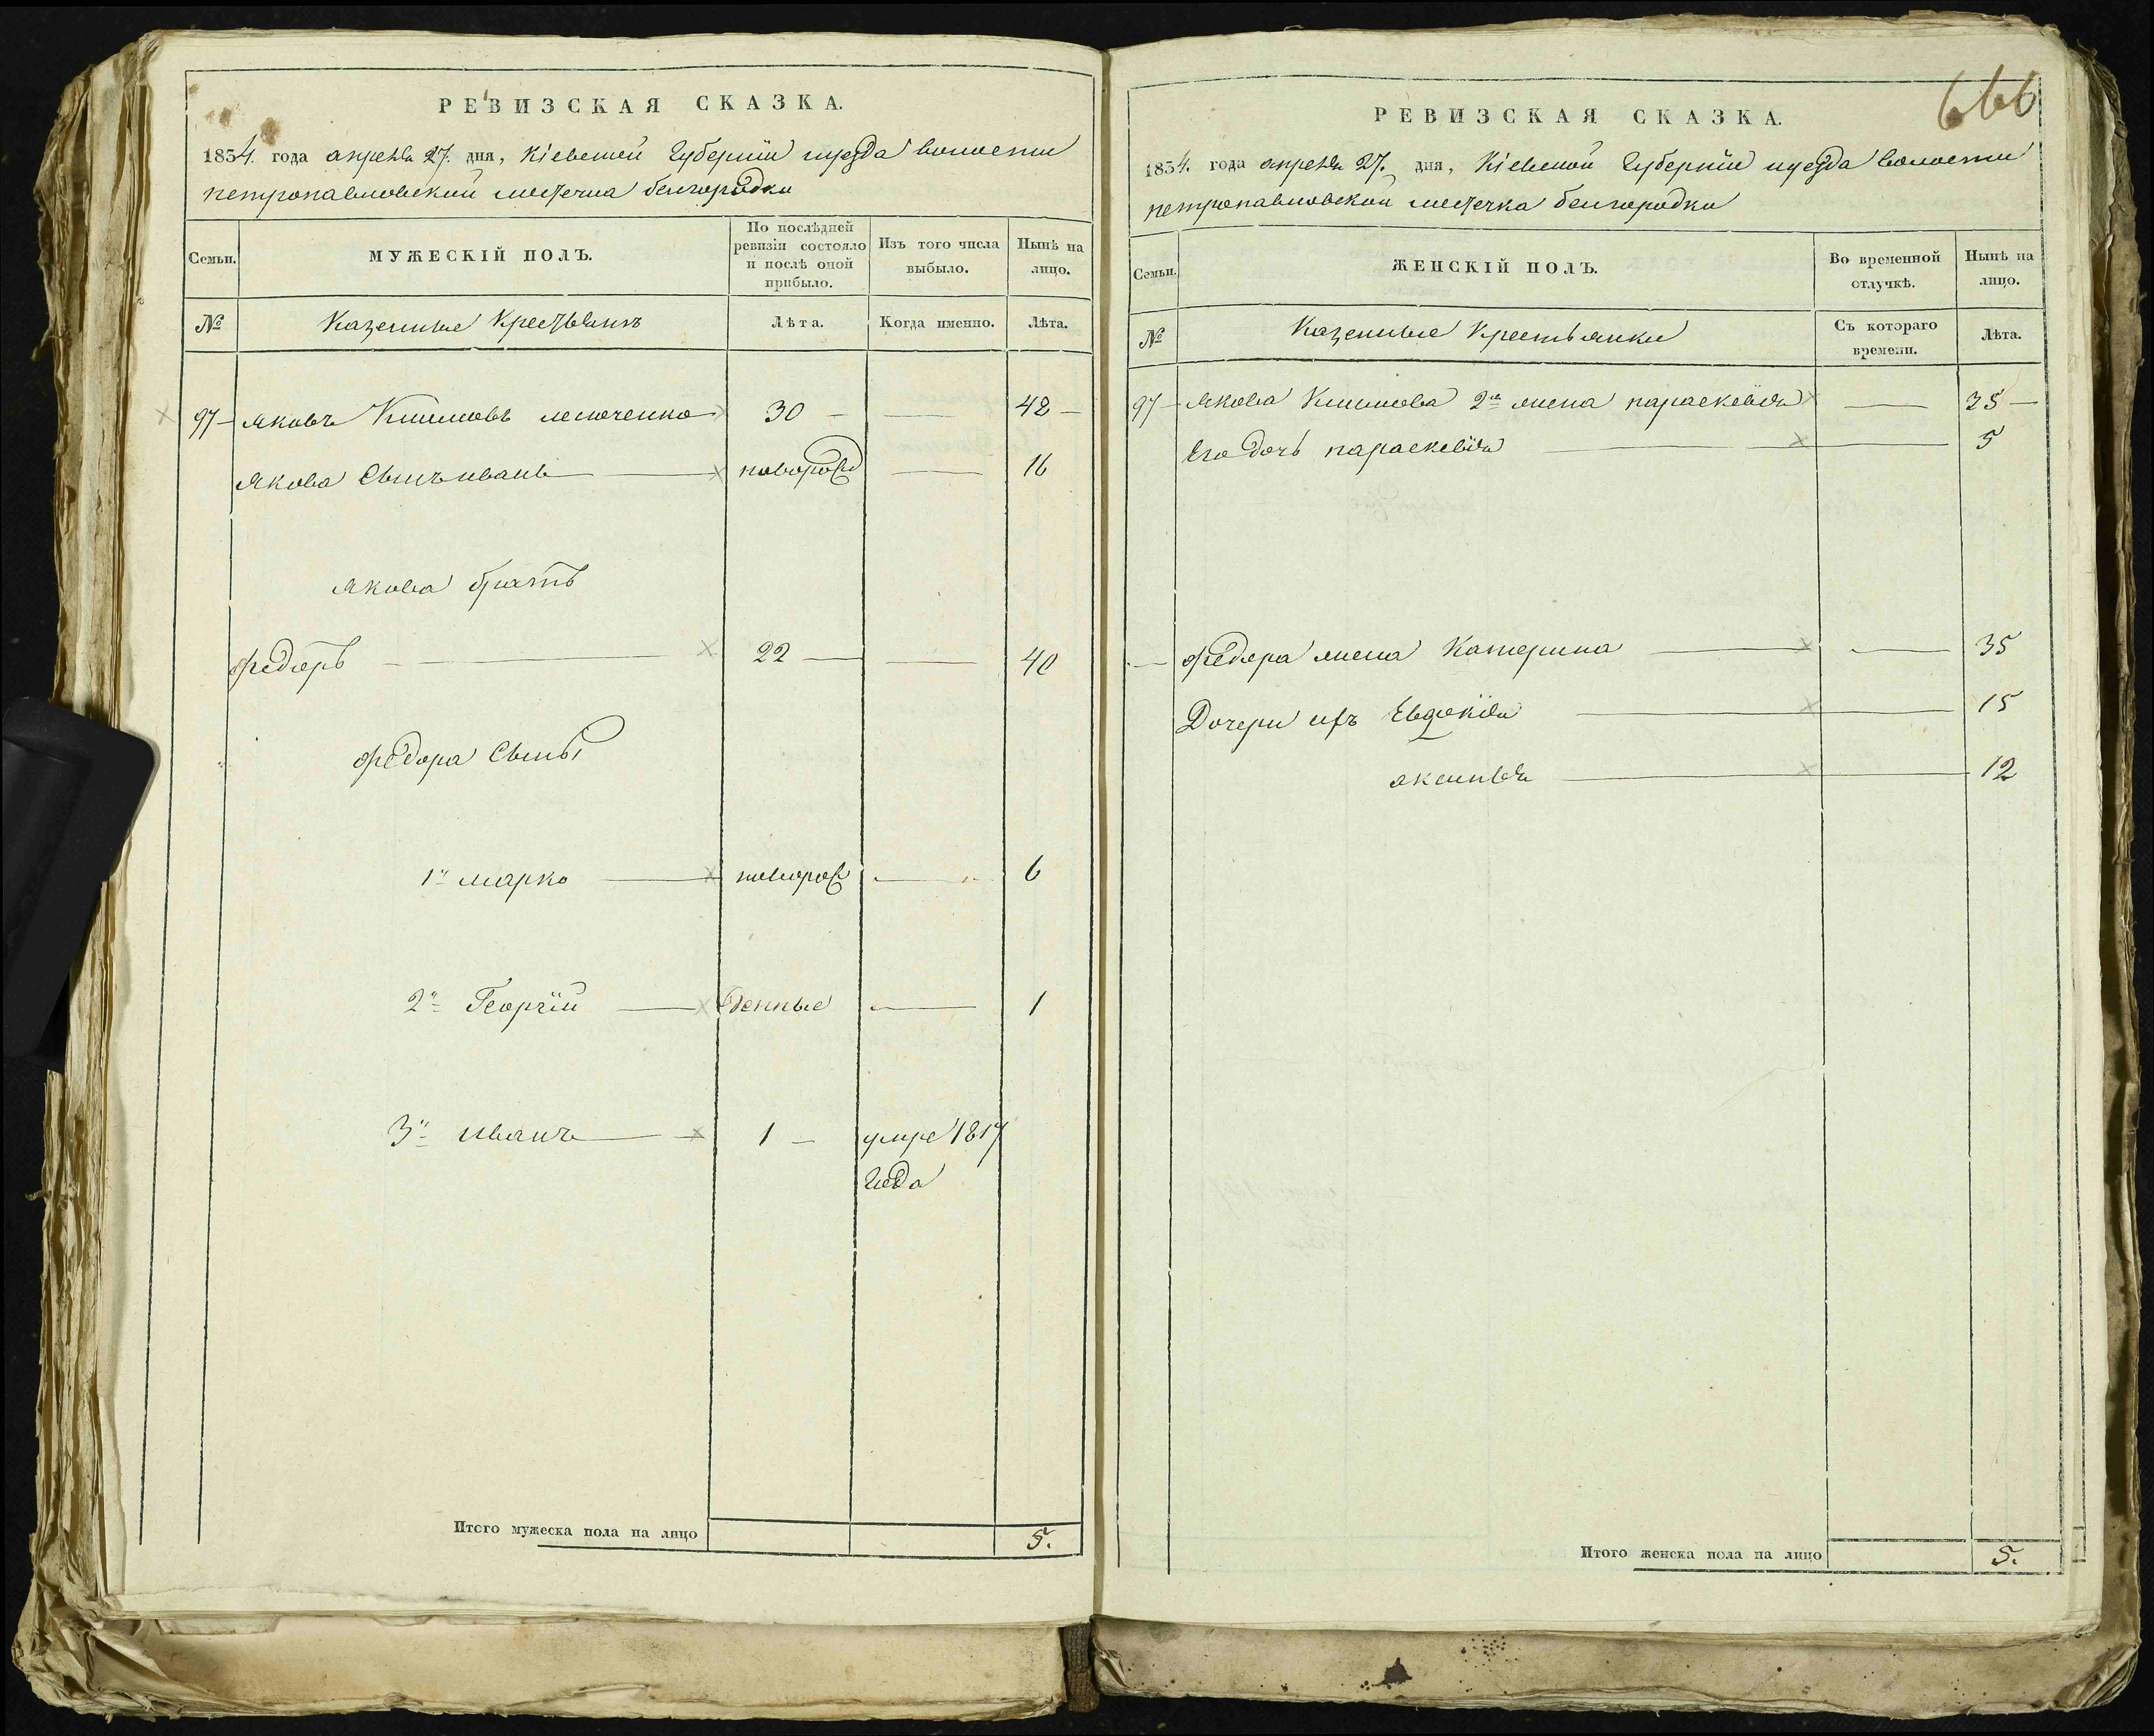 РЕВИЗСКАЯ СКАЗКА.
1834. года апреля 27. дня, Кіевской Губерніи уезда волости
петропавловской местечка белгородки
Семьи.
МУЖЕСКІЙ ПОЛЪ.
По послѣдней ревизіи состояло и послѣ оной прибыло.
Изъ того числа выбыло.
Нынѣ на лицо.
№
Казенные Крестьянъ
Лѣта.
Когда именно.
Лѣта.
97 Яковъ Климовъ 30 — — 42 —
Якова Сынъ иванъ — новорожд — 16
якова братъ
Федоръ — 22 — — 40
Федора Сыны
1й марко — новорож — 6
2й Георгій — денные — 1
3й иванъ — 1 — умре 1817
Года
Итого мужеска пола на лицо 5.
666
РЕВИЗСКАЯ СКАЗКА.
1834. года апреля 27. дня, Кіевской Губерніи уезда волости
петропавловской местечка белгородки
Семьи.
ЖЕНСКІЙ ПОЛЪ.
Во временной отлучкѣ.
Нынѣ на лицо.
№
Казенные Крестьянки
Съ котораго времени.
Лѣта.
97 — Якова Климова 2я жена параскевія — 35 —
Его дочь параскевія — 5
— Федора жена Катерина — — 35
Дочери ихъ Евдокія — 15
аксинья — 12
Итого женска пола на лицо 5.